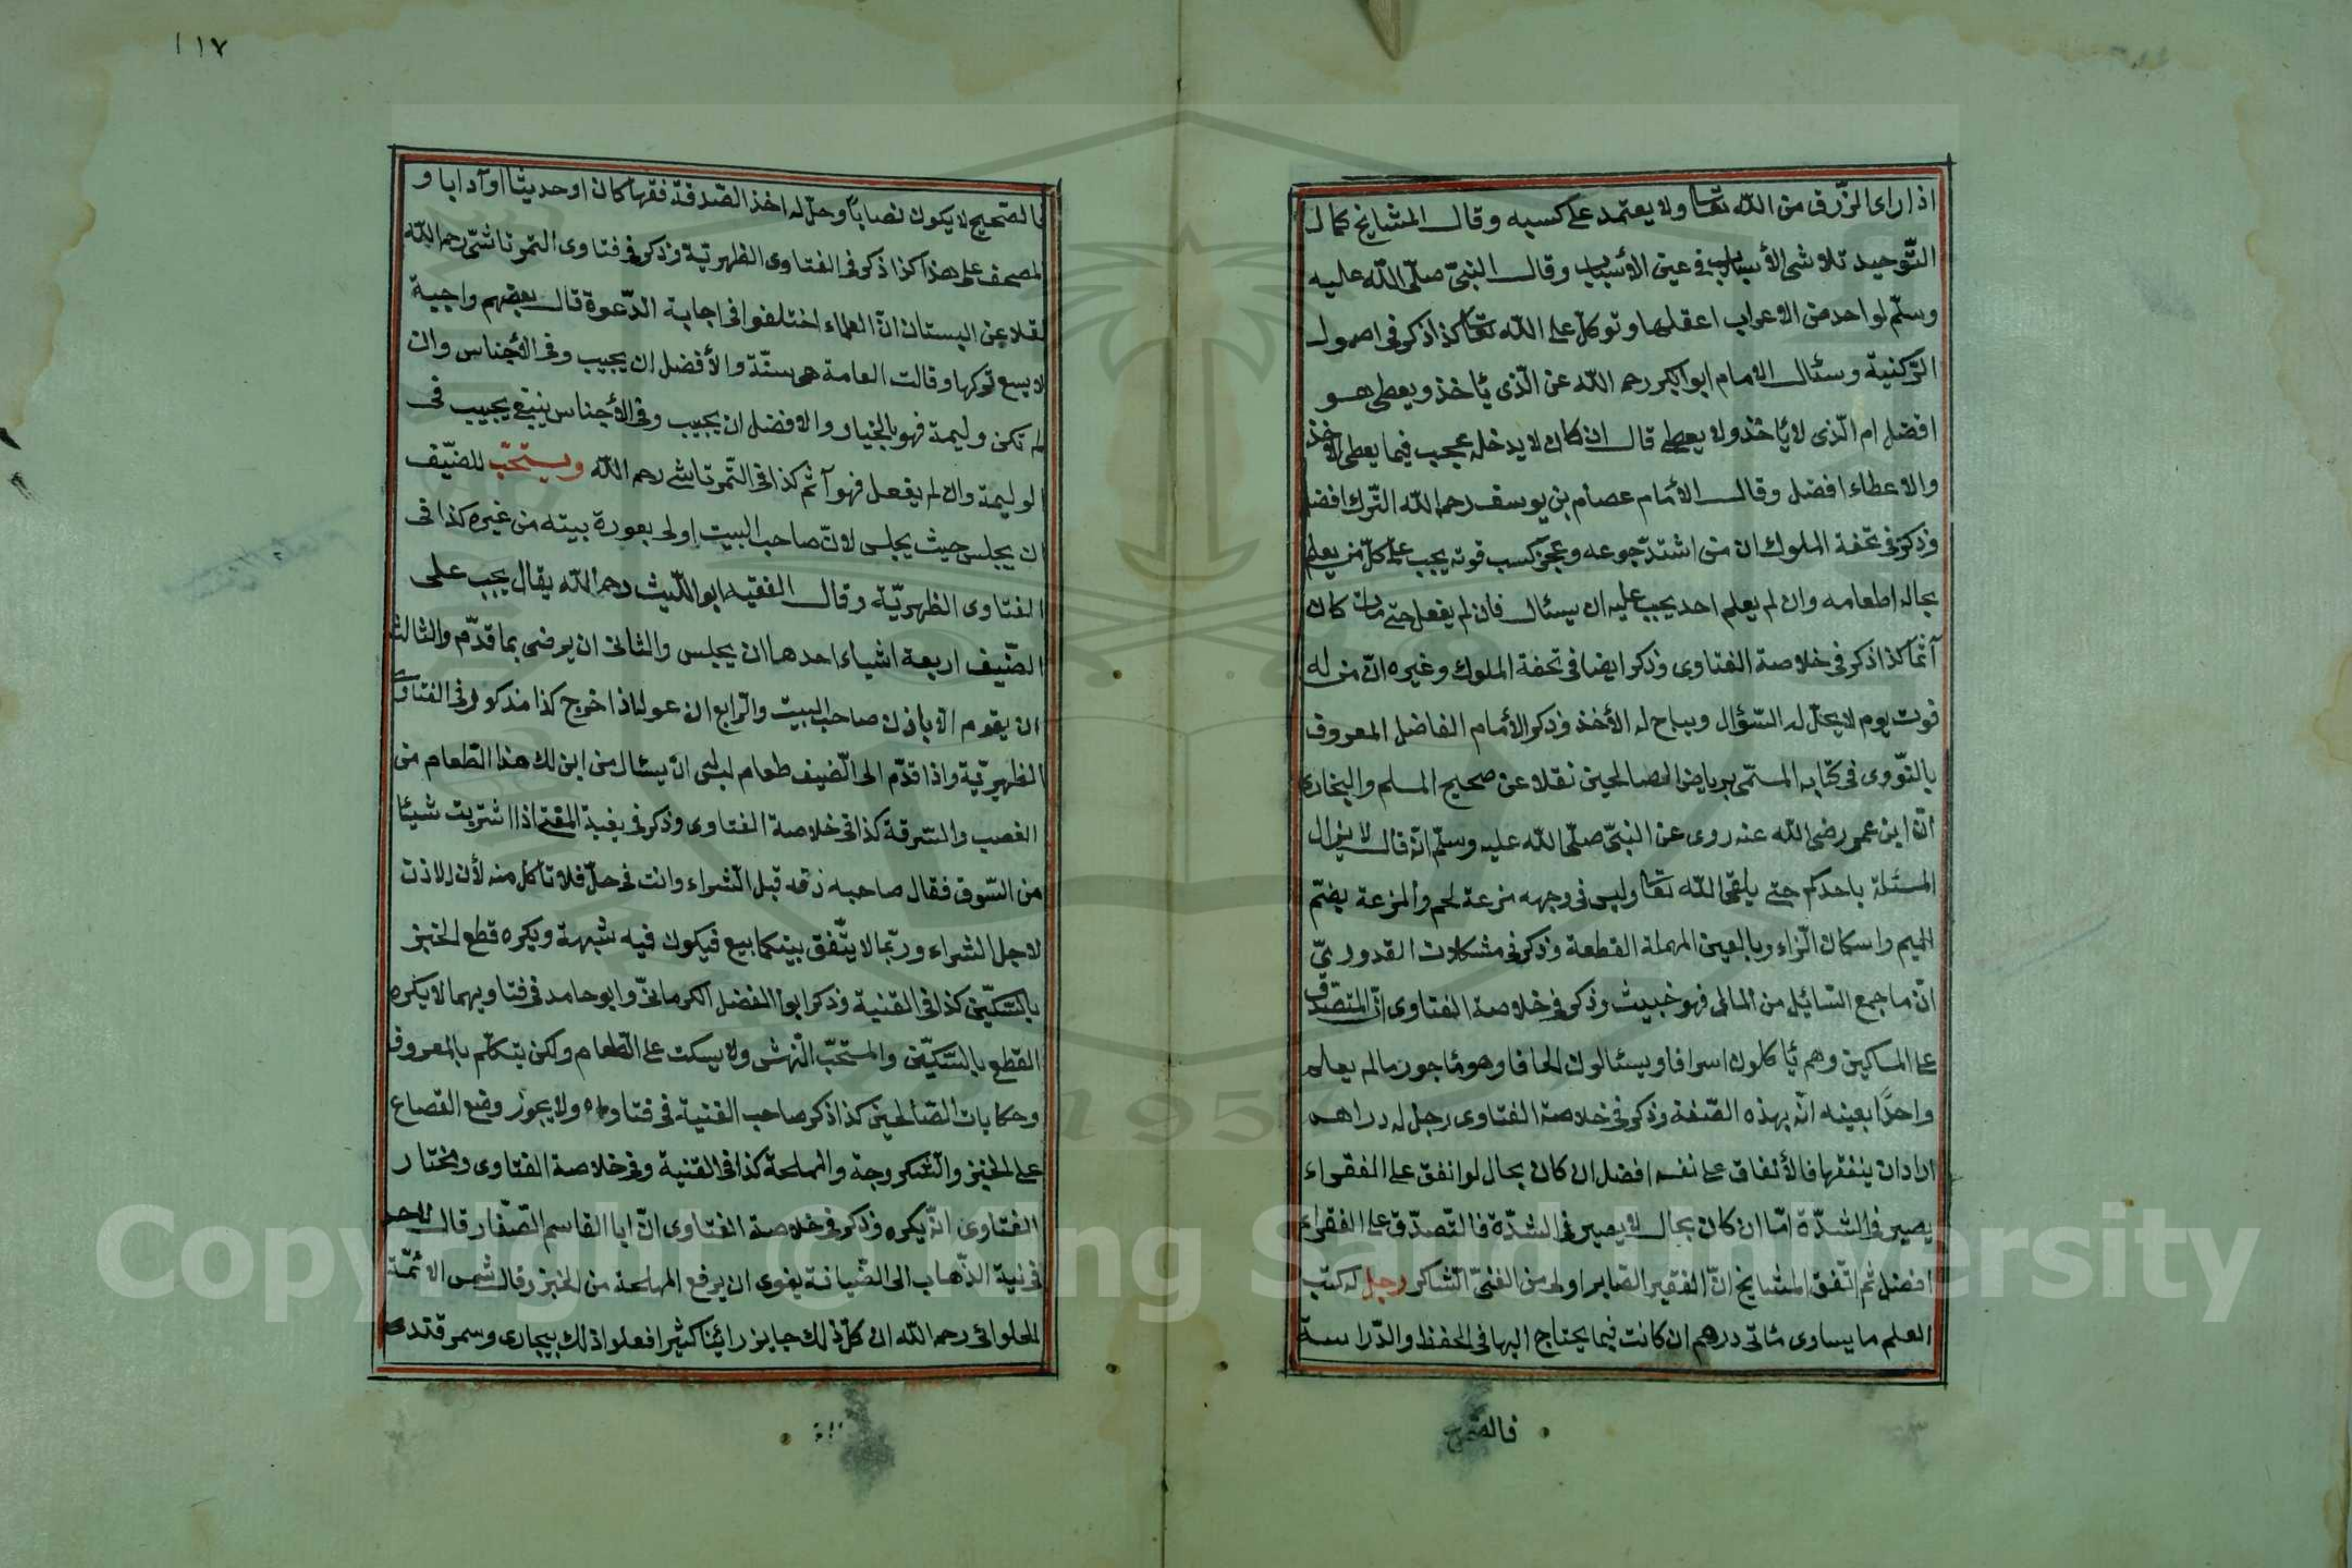 اذا راى الرّزق من الله تعا ولا يعتمد على كسبه وقال المشايخ كمال
التّوحيد تلاشى الأسباب فى عين الاسباب وقال النبىّ صلّى الله عليه
وسلّم لواحد من الاعراب اعقلها وتوكّل على الله تعا كذا ذكر فى اصول
التركنية وسئال الامام ابو ابكر رحمه الله عن الّذى يأخذ ويعطى هو
افضل ام الّذى لا يأخذ ولا يعطى قال ان كان لا يدخله عجب فيما يعطى الاخذ
والاعطاء افضل وقال الامام عصام بن يوسف رحمه الله التّرك افضل
وذكر فى تحفة الملوك ان من اشتدّ جوعه وعجز كسب قوته يجب على كلّ من يعلم
بحاله اطعامه وان لم يعلم احد يجب عليه ان يسئال فان لم يفعل حتى مات كان
آثما كذا ذكر فى خلاصة الفتاوى وذكر ايضا فى تحفة الملوك وغيره انّ من له
قوت يوم لا يحلّ له السّؤال ويباح له الأخذ وذكر الأمام الفاضل المعروف
بالنّووى فى كتابه المسمّى برياض الصالحين نقلا عن صحيح المسلم والبخارى
انّ ابن عمر رضى الله عنه روى عن النبىّ صلّى الله عليه وسلّم انّه قال لا يزال
المسئلة باحدكم حتى يلقى الله تعا وليس فى وجهه مزعة لحم والمزعة بضمّ
الميم واسكان الزاء وبالعين المهملة القطعة وذكر فى مشكلات القدورىّ
انّ ما جمع السّائيل من المالى فهو خبيث وذكر فى خلاصة الفتاوى انّ المتصّدق
على المساكين وهم يأكلون اسرافا ويسئالون الحافا وهو مأجور مالم يعلم
واحدًا بعينه انّه بهذه الصّفة وذكر فى خلاصة الفتاوى رجل له دراهم
اراد ان ينفقها فالأنفاق على نفسه افضل ان كان بحال لو انفق على الفقراء
يصير فى الشدّة امّا ان كان بحال لا يصير فى الشدّة فالتّصدّق على الفقراء
افضل ثم اتّفق المشايخ انّ الفقير الصّابر اولى من الغنىّ الشّاكر رجل له كتب
العلم ما يساوى مأتى درهم ان كانت فيما يحتاج اليها فى الحفظ والدّراسة
فالصّحيح
١١٧
فالصّحيح لا يكون نصاباً وحلّ له اخذ الصّدقة فقها كان او حديثا او آدابا و
المصحف على هذا كذا ذكر فى الفتاوى الظهرتية وذكر فى فتاوى التمرتاشىّ رحمه الله
نقلا عن البستان انّ العلماء اختلفوا فى اجابة الدّعوة قال بعضهم واجبة
لا يسع تركها وقالت العامة هى سنّة والأفضل ان يجيب وفى الأجناس وان
لم تكن وليمة فهو بالخيار والافضل ان يجيب وفى الأجناس ينبغى يجيب فى
الوليمة وان لم يفعل فهو آثم كذا فى التّمرتاشى رحمه الله ويستحبّ للضّيف
ان يجلس حيث يجلس لانّ صاحب البيت اولى بعورة بيته من غيره كذا فى
الفتاوى الظهريّة وقال الفقيه ابو اللّيث رحمه الله يقال يجب على
الضّيف اربعة اشياء احدها ان يجلس والثانى ان يرضى بما قدّم والثالث
ان يقوم الا باذن صاحب البيت والرابع ان عو له اذا خرج كذا مذكور فى الفتاوى
الظهيرتية واذا قدّم الى الضّيف طعام ليس ان يسئال من اين لك هذا الطّعام من
الغصب والسّرقة كذا فى خلاصة الفتاوى وذكر فى بغية المقتى اذا اشتريت شيئا
من السّوق فقال صاحبه ذقه قبل الشراء وانت فى حلّ فلا تأكل منه لأن الاذن
لاجل الشراء وربّما لا يتّفق بينكما بيع فيكون فيه شبهة ويكره قطع الخبز
بالسّكّين كذا فى القنية وذكر ابو الفضل الكرمانىّ وابو حامد فى فتاويهما لا يكره
القطع بالسّكّين والمستحبّ النّهش ولا يسكت على الطّعام ولكن يتكلّم بالمعروف
وحكايات الصّالحين كذا ذكر صاحب القنية فى فتاواه ولا يجوز وضع القصاع
على الخبز والسّكروجة والمملحة كذا فى القنية وفى خلاصة الفتاوى ومختار
الفتاوى انّه يكره وذكر فى خلاصة الفتاوى انّ ابا القاسم الصّفار قال
فى نية الذّهاب الى الضّيافة ينوى ان يرفع المملحة من الخبز وقال شمس الائمّة
الحلوائى رحمه الله ان كلّ ذلك جايز رائينا كثيرا فعلوا ذلك ببخارى وسمرقند
Copyright © King Saud University
1957